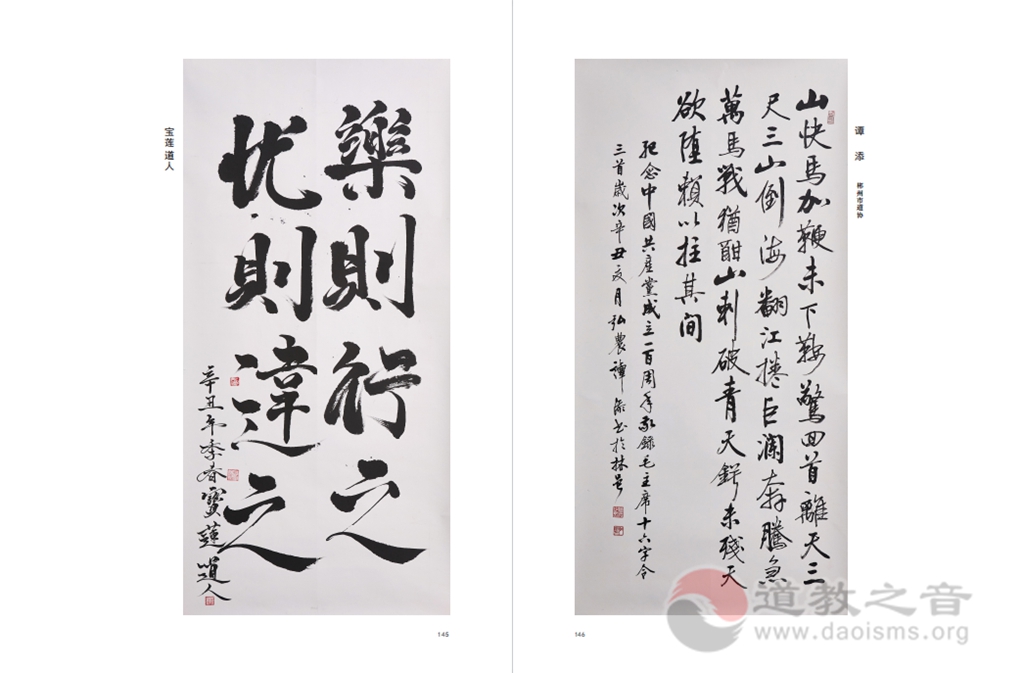 宝莲道人
樂則行之
忧則違之
辛丑年季春寶蓮道人
145
谭添
郴州市道协
山快馬加鞭未下鞍驚回首離天三
尺三山倒海翻江捲巨澜奔騰急
萬馬戰猶酣山刺破青天鍔未殘天
欲堕賴以拄其间
紀念中國共產黨成立一百周年敬錄毛主席十六字令
三首歲次辛丑夏月弘農譚添书於林邑
146
道教之音
www.daoisms.org